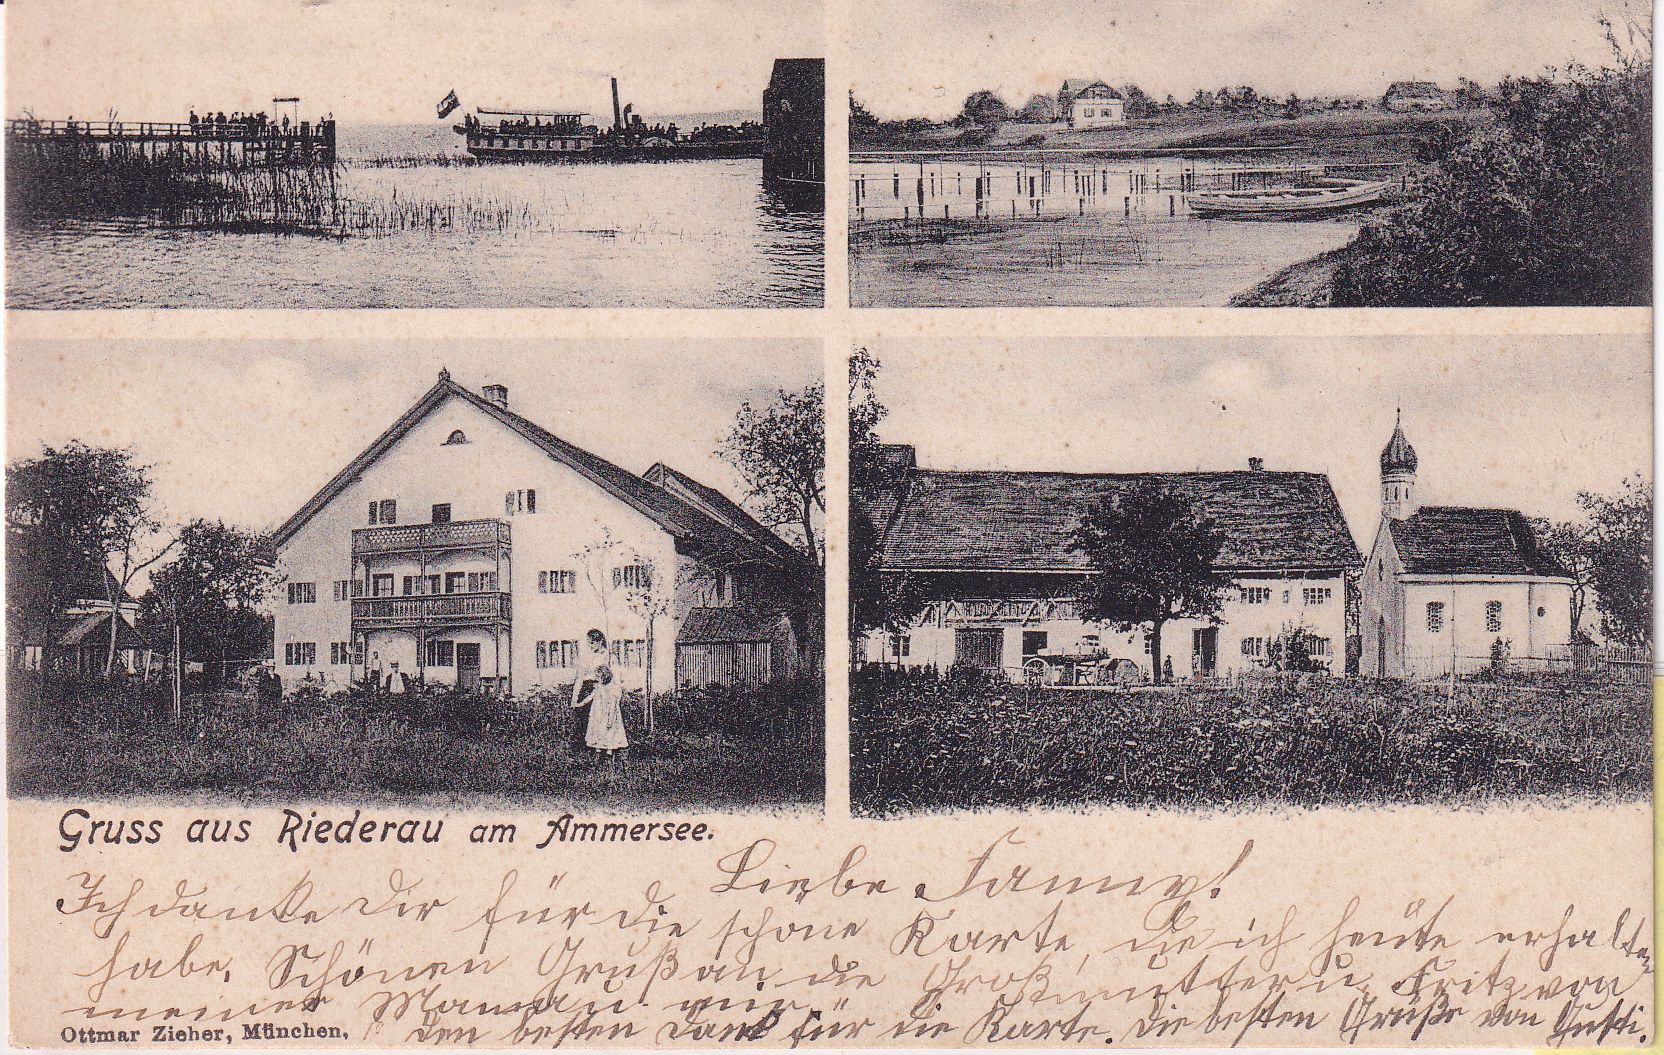 Gruss aus Riederau am Ammersee.
Liebe Fanny!
Ich danke Dir für die schöne Karte, die ich heute erhalten
habe. Schönen Gruß an die Großmutter u. Fritz von
meiner Mama u. mir
Ottmar Zieher, München.
den besten Dank für die Karte. Die besten Grüße von Gusti.